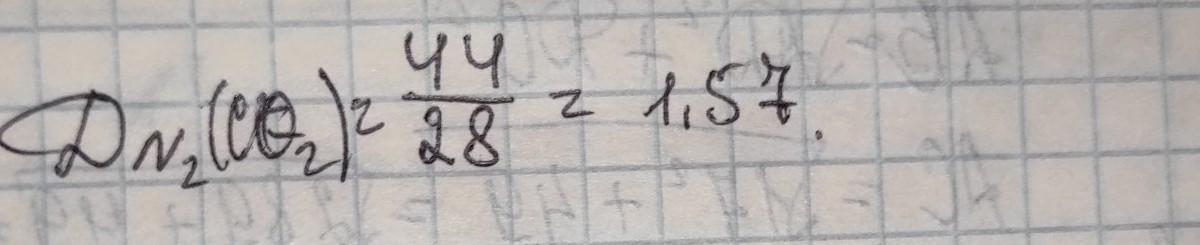 D N₂(CO₂) = 44/28 = 1,57.